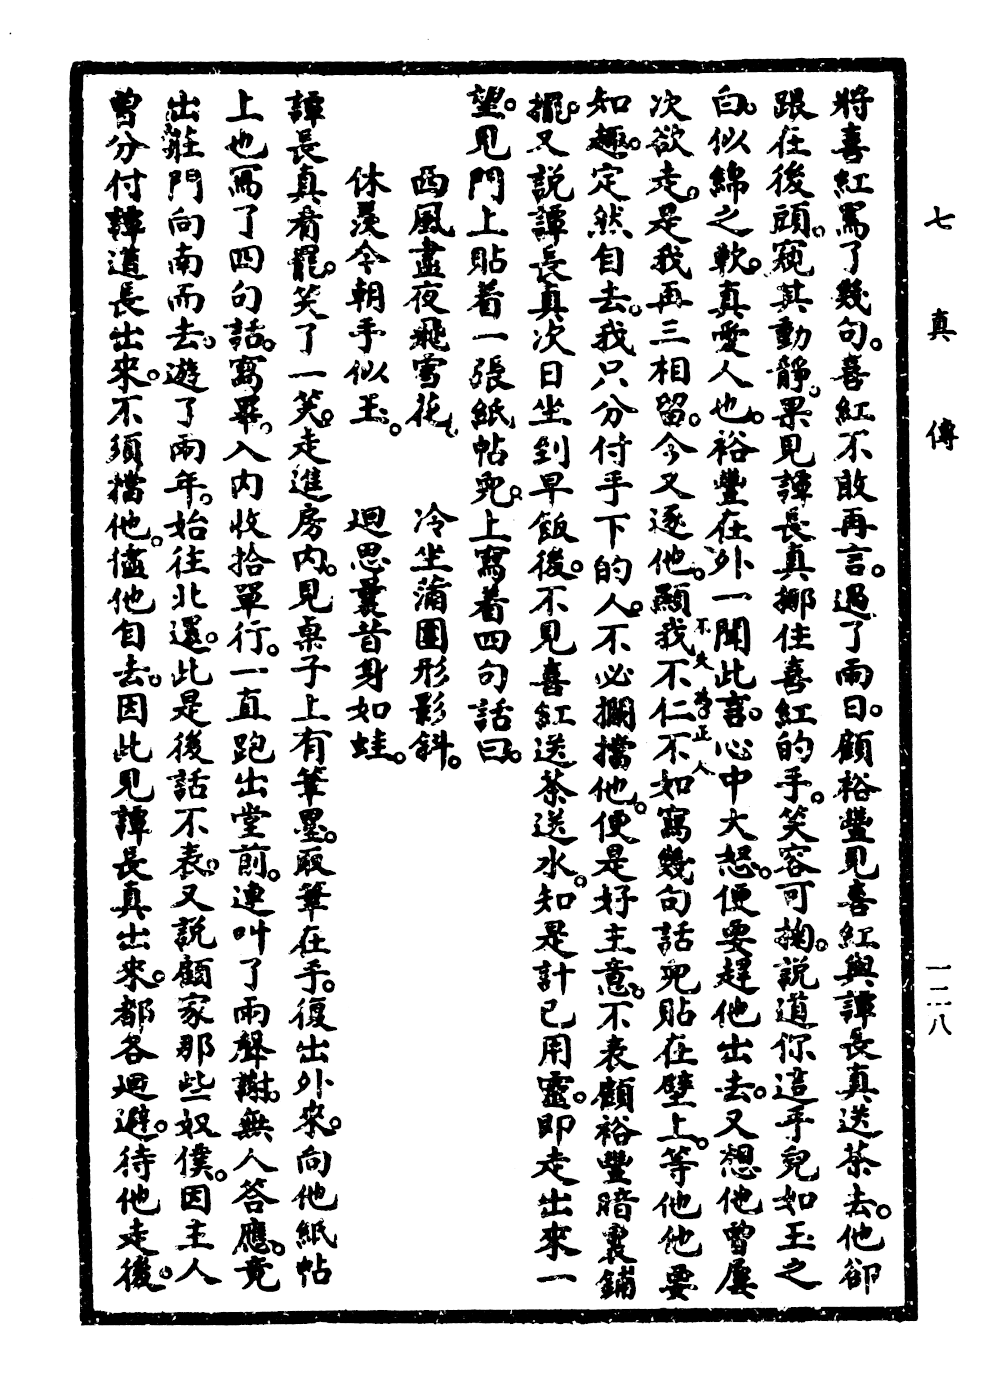 七真傳
一二八
將喜紅罵了幾句。喜紅不敢再言。過了兩日。顧裕豐見喜紅與譚長真送茶去。他卻
跟在後頭。窺其動靜。果見譚長真挪住喜紅的手。笑容可掬。說道你這手兒如玉之
白。似綿之軟。真愛人也。裕豐在外一聞此言。心中大怒。便要趕他出去。又想他曾屢
次欲走。是我再三相留。今又逐他。顯我不仁。不如寫幾句話兒貼在壁上。等他他要
不失為正人
知趣。定然自去。我只分付手下的人。不必攔擋他。便是好主意。不表顧裕豐暗裏鋪
擺。又說譚長真次日坐到早飯後。不見喜紅送茶送水。知是計已用靈。即走出來一
望。見門上貼着一張紙帖兒。上寫着四句話曰。
西風盡夜飛雪花。冷坐蒲團形影斜。
休羨今朝手似玉。迴思曩昔身如蛙。
譚長真看罷。笑了一笑。走進房內。見桌子上有筆墨。取筆在手。復出外來。向他紙帖
上也寫了四句話。寫畢。入內收拾單行。一直跑出堂前。連叫了兩聲謝。無人答應。竟
出莊門向南而去。遊了兩年。始往北還。此是後話不表。又說顧家那些奴僕。因主人
曾分付譚道長出來。不須擋他。儘他自去。因此見譚長真出來。都各迴避。待他走後。